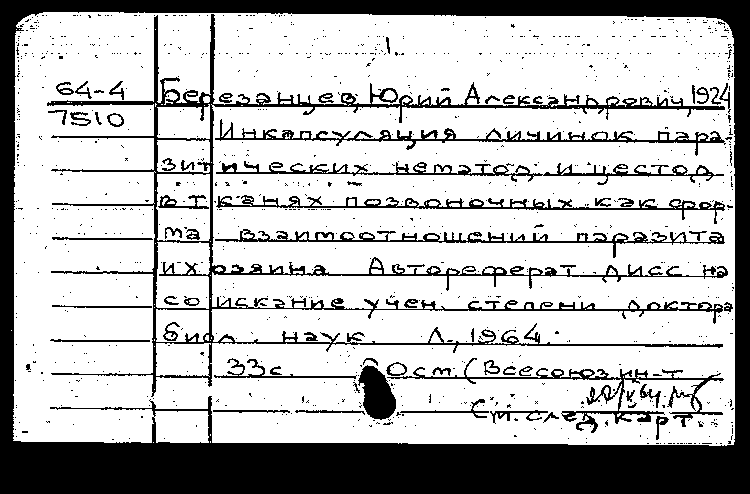 1.
64-4 Березанцев, Юрий Александрович, 1924
7510
Инкапсуляция личинок пара-
зитических нематод и цестод
в тканях позвоночных как фор-
ма взаимоотношений паразита
и хозяина. Автореферат дисс. на
соискание учен. степени доктора
биол. наук. Л., 1964.
33 с. 20 см. (Всесоюз. ин-т
См. след. карт.